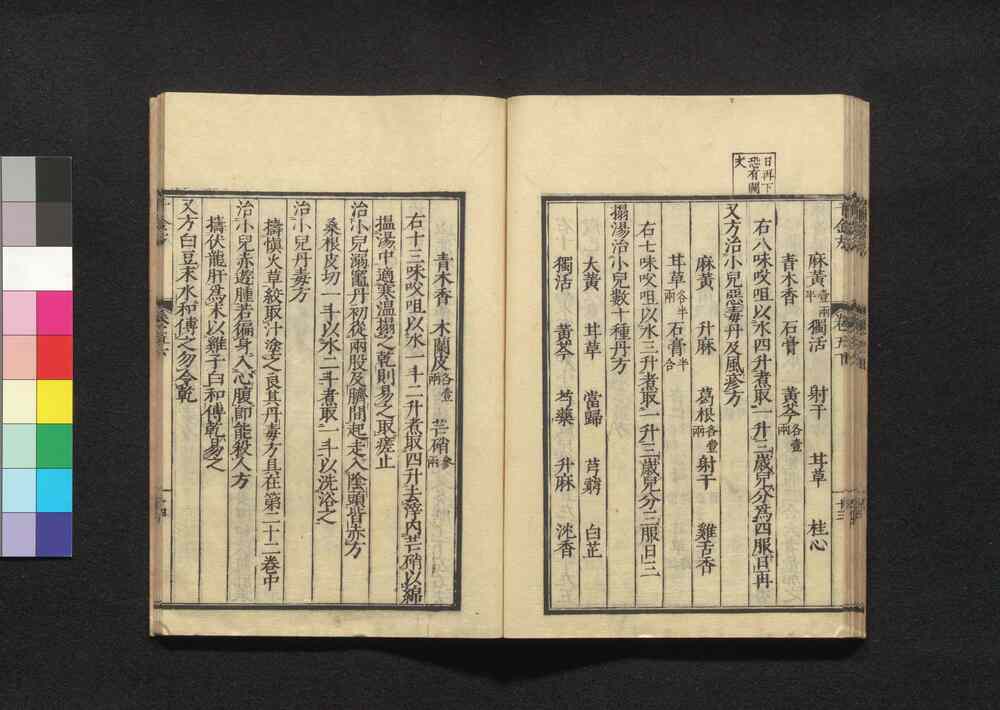 日再下
恐有闕
文
麻黃壹兩半 獨活 射干 甘草 桂心
青木香 石膏 黃芩各壹兩
右八味㕮咀以水四升煮取一升三歲兒分爲四服日再
又方治小兒惡毒丹及風𤺋方
麻黃 升麻 葛根各壹兩 射干 雞舌香
甘草各半兩 石膏半合
右七味㕮咀以水三升煮取一升三歲兒分三服日三
搨湯治小兒數十種丹方
大黃 甘草 當歸 芎藭 白芷
獨活 黃芩 芍藥 升麻 沈香
青木香 木蘭皮各壹兩 芒硝參兩
右十三味㕮咀以水一斗二升煮取四升去滓內芒硝以綿
搵湯中適寒溫搨之乾則易之取瘥止
治小兒溺竈丹初從兩股及臍間起走入陰頭皆赤方
桑根皮切一斗以水二斗煮取一斗以洗浴之
治小兒丹毒方
擣愼火草絞取汁塗之良其丹毒方具在第二十二卷中
治小兒赤遊腫若徧身入心腹即能殺人方
擣伏龍肝爲末以雞子白和傅乾易之
又方白豆末水和傅之勿令乾